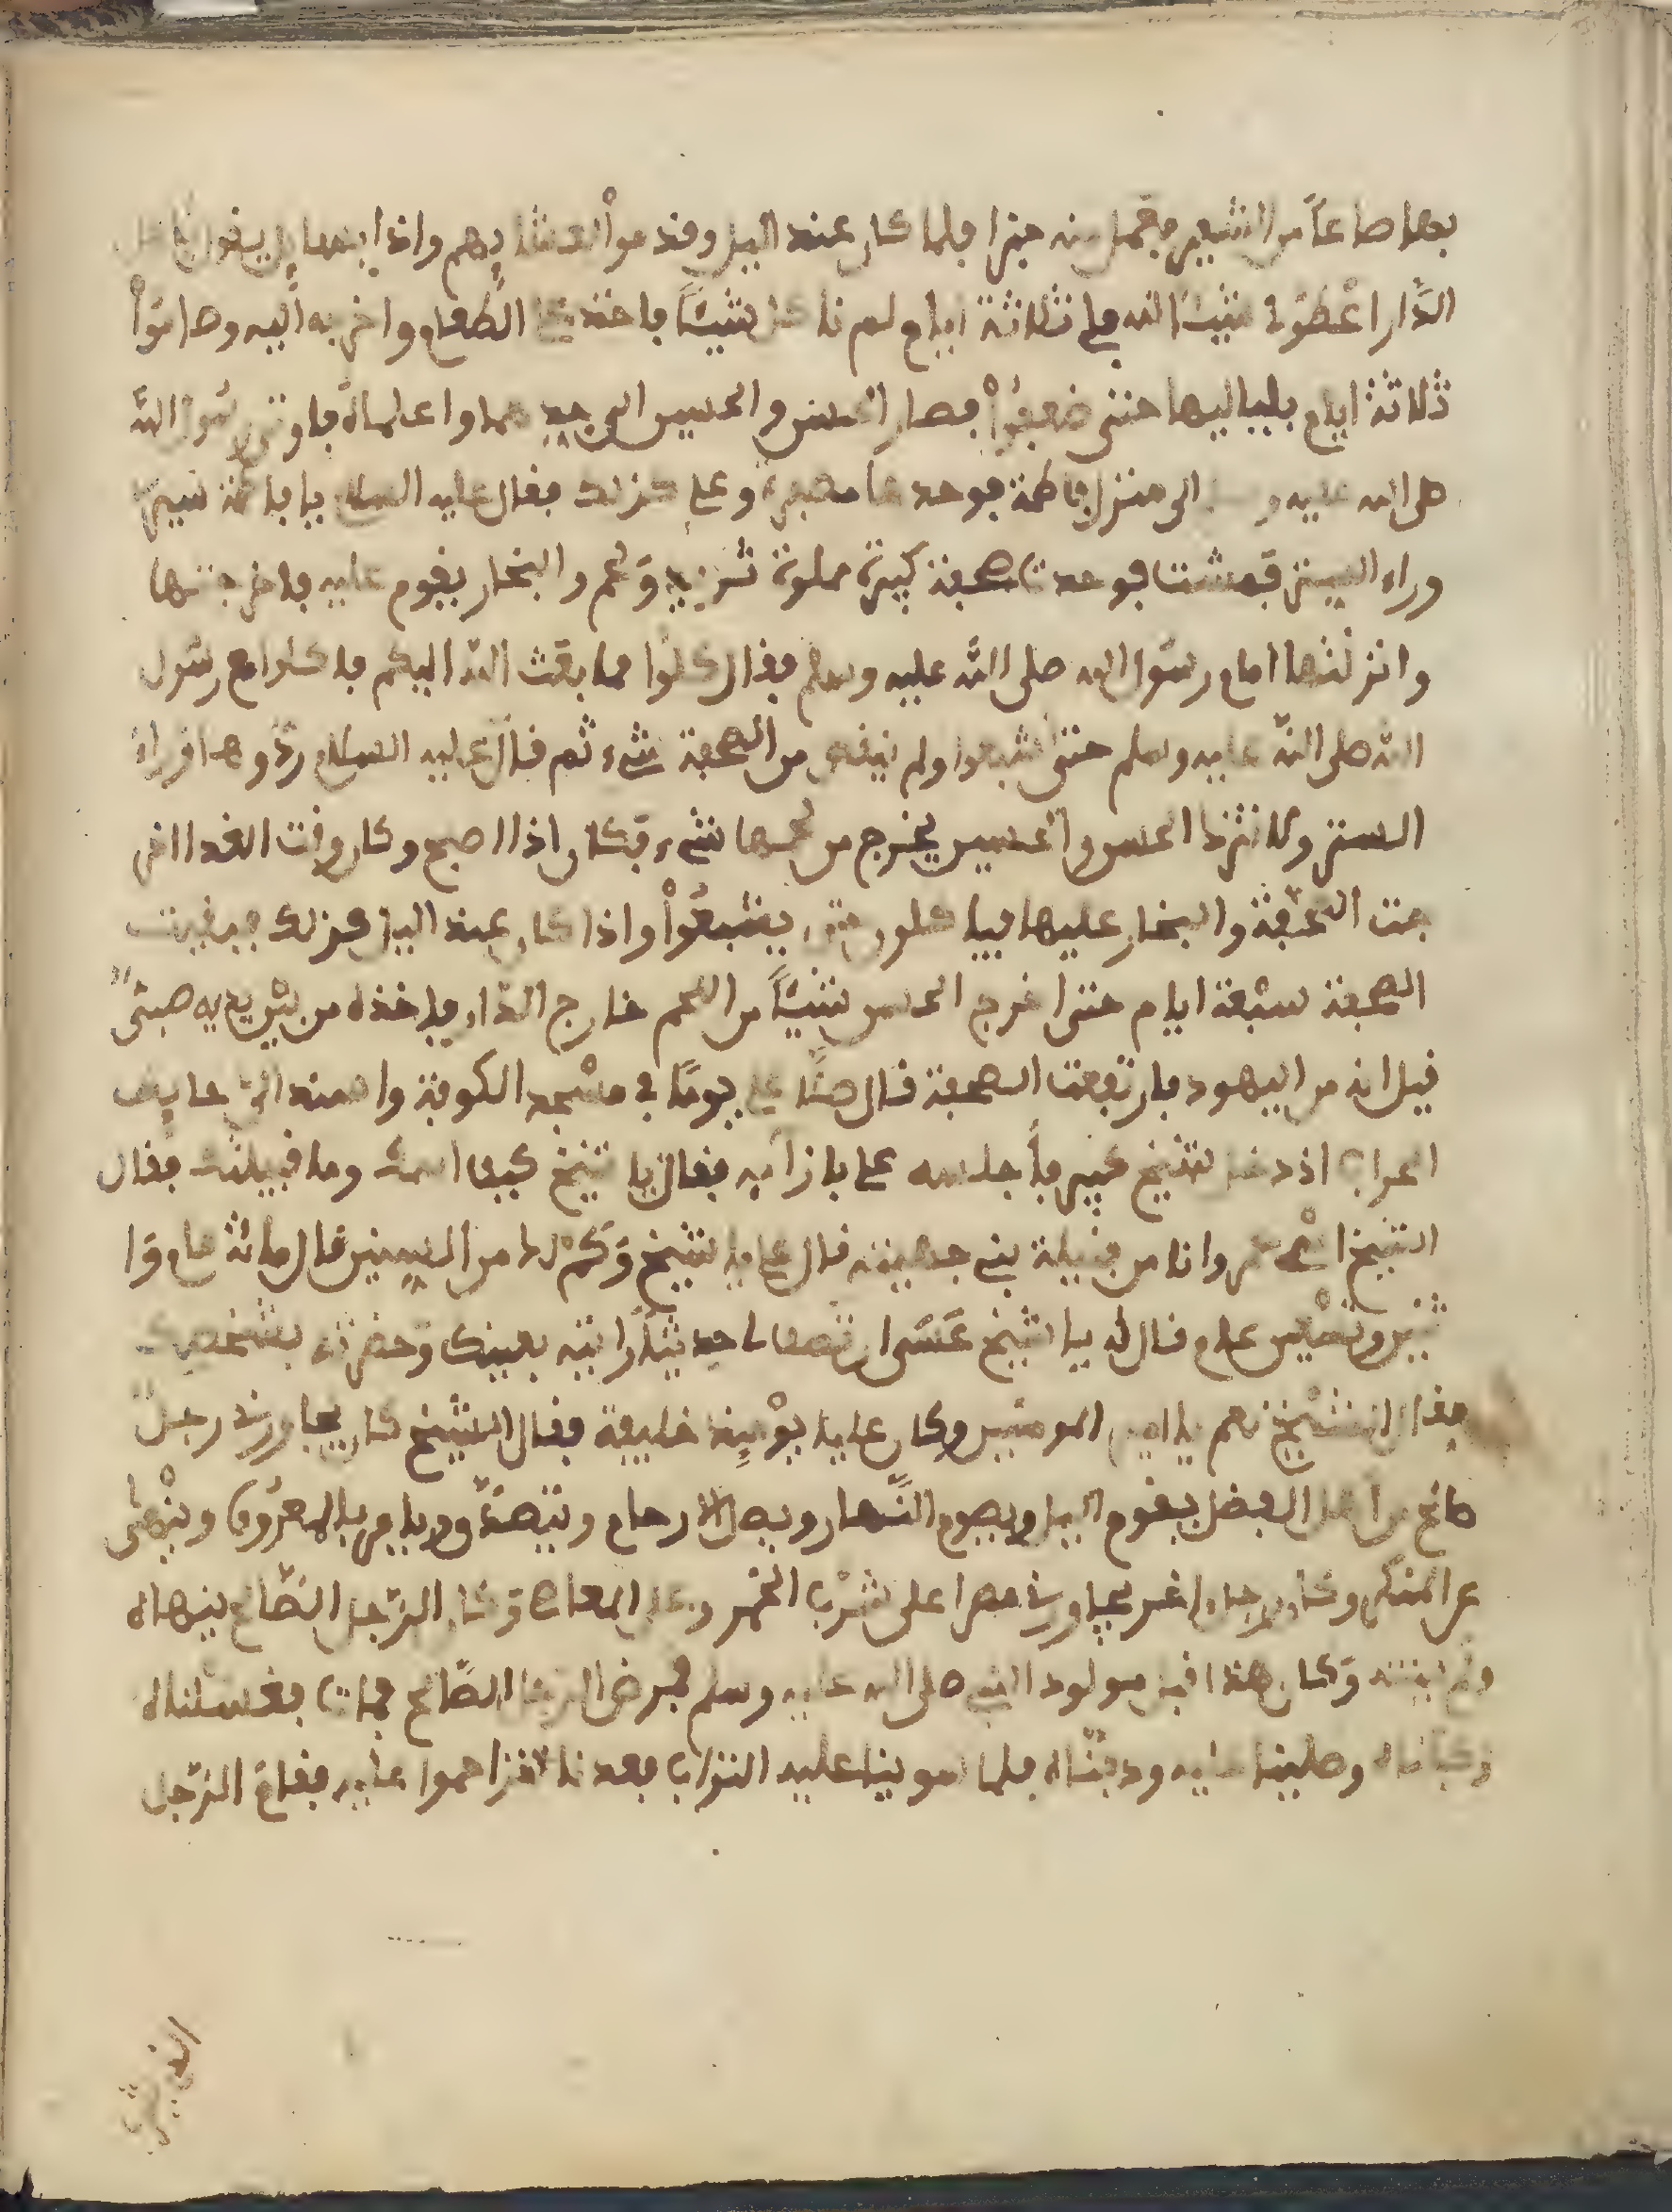 بها صاعا من الشعير فعمل منه خبزا فلما كان عند اليل وقدموا لعشايهم واذا بسايل يقول يا اهل
الدار اعطوني شيئا لله فلي ثلاثة ايام ولم ناكل شيئا فاخذ علي الطعام واخرجه اليه وصاموا
ثلاثة ايام بلياليها حتى ضعفوا فصار الحسن والحسين الى جدهما واعلماه فاوتى رسول الله
صلى الله عليه وسلم الى منزل فاطمة فوجدها مصفرة وعلي كذلك فقال عليه السلام يا فاطمة سيري
وراء الستر فمشت فوجدت صحفة كبيرة مملوة ثريد ولحم والبخار يفوم عليه فاخرجتها
وانزلتها امام رسول الله صلى الله عليه وسلم فقال كلوا مما بعث الله اليكم فاكلوا مع رسول
الله صلى الله عليه وسلم حتى شبعوا ولم ينقص من الصحفة شيء ثم قال عليه السلام ردوها وراء
الستر ولا تترك الحسن والحسين يخرج من لحمها شيء فكان اذا اصبح وكان وقت الغدا اخر
جت الصحفة والبخار عليها فياكلون حتى يشبعوا واذا كان عند اليل كذلك فبقيت
الصحفة سبعة ايام حتى اخرج الحسن شيئا من اللحم خارج الدار فاخذه من يديه صبي
قيل انه من اليهود فارتفعت الصحفة قال صلى علي يوما في مسجد الكوفة واسند الى حايط
المحراب اذ دخل شيخ كبير فاجلسه علي بازايه فقال يا شيخ كيف اسمك وما قبيلتك فقال
الشيخ اسمي وانا من قبيلة بني جهينة قال علي يا شيخ وكم لك من السنين قال مائة عام وا
ثنين وتسعين عام قال له يا شيخ عسى ان تصف لنا حديثا رايته بعينك وحضرته بشخصك
فقال الشيخ نعم يا امير المومنين وكان علي يومئذ خليفة فقال الشيخ كان يجاورني رجل
صالح من اهل الفضل يقوم اليل ويصوم النهار ويصل الارحام ويتصدق ويامر بالمعروف وينهى
عن المنكر وكان رجل اخر يجاورني مصرا على شرب الخمر وعلى المعاصي وكان الرجل الصالح ينهاه
ولم ينته وكان هذا قبل مولود النبي صلى الله عليه وسلم فمرض الرجل الصالح فمات فغسلناه
وكفناه وصلينا عليه ودفناه فلما سوينا عليه التراب بعد ذلك تزاحموا عليه فقام الرجل
الذي يشرب